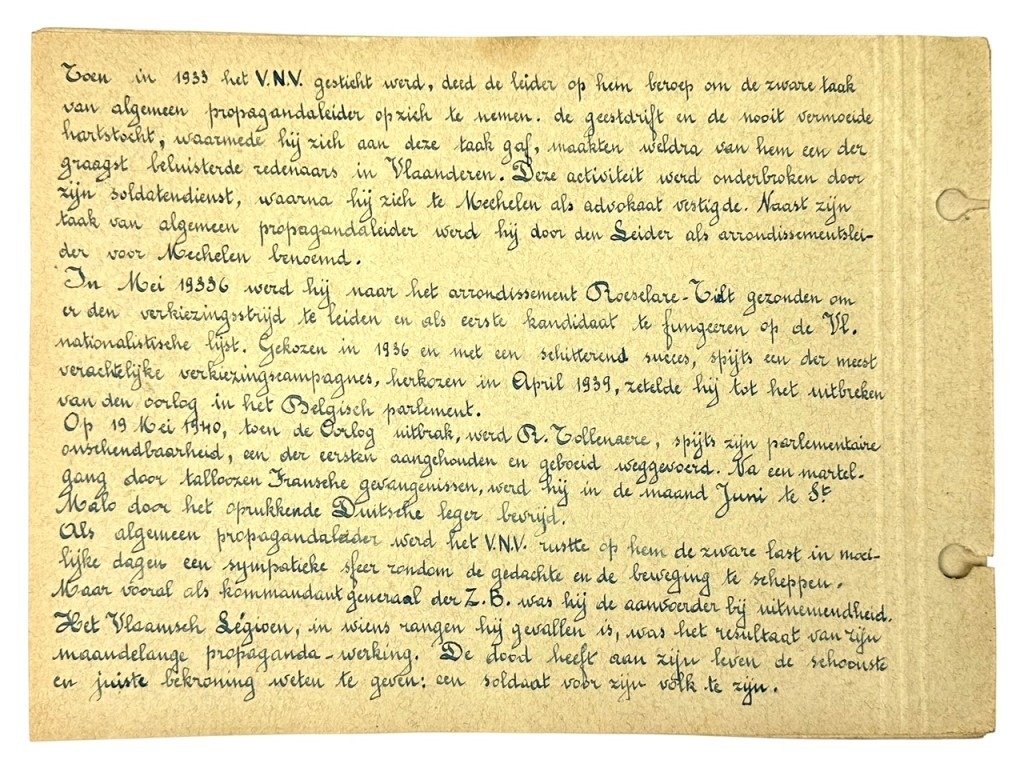 Toen in 1933 het V.N.V. gesticht werd, deed de leider op hem beroep om de zware taak
van algemeen propagandaleider op zich te nemen. de geestdrift en de nooit vermoeide
hartstocht, waarmede hij zich aan deze taak gaf, maakten weldra van hem een der
graagst beluisterde redenaars in Vlaanderen. Deze activiteit werd onderbroken door
zijn soldatendienst, waarna hij zich te Mechelen als advokaat vestigde. Naast zijn
taak van algemeen propagandaleider werd hij door den Leider als arrondissementslei-
der voor Mechelen benoemd.
In Mei 19336 werd hij naar het arrondissement Roeselare-Tielt gezonden om
er den verkiezingsstrijd te leiden en als eerste kandidaat te fungeeren op de Vl.
nationalistische lijst. Gekozen in 1936 en met een schitterend succes, spijts een der meest
verachtelijke verkiezingscampagnes, herkozen in April 1939, zetelde hij tot het uitbreken
van den oorlog in het Belgisch parlement.
Op 19 Mei 1940, toen de Oorlog uitbrak, werd R. Tollenaere, spijts zijn parlementaire
onschendbaarheid, een der eersten aangehouden en geboeid weggevoerd. Na een martel-
gang door talloozen Fransche gevangenissen, werd hij in de maand Juni te St
Malo door het oprukkende Duitsche leger bevrijd.
Als algemeen propagandaleider werd het V.N.V. rustte op hem de zware last in moei-
lijke dagen een sympatieke sfeer rondom de gedachte en de beweging te scheppen.
Maar vooral als kommandant generaal der Z.B. was hij de aanvoerder bij uitnemendheid.
Het Vlaamsch Légioen, in wiens rangen hij gevallen is, was het resultaat van zijn
maandelange propaganda-werking. De dood heeft aan zijn leven de schoonste
en juiste bekroning weten te geven: een soldaat voor zijn volk te zijn.